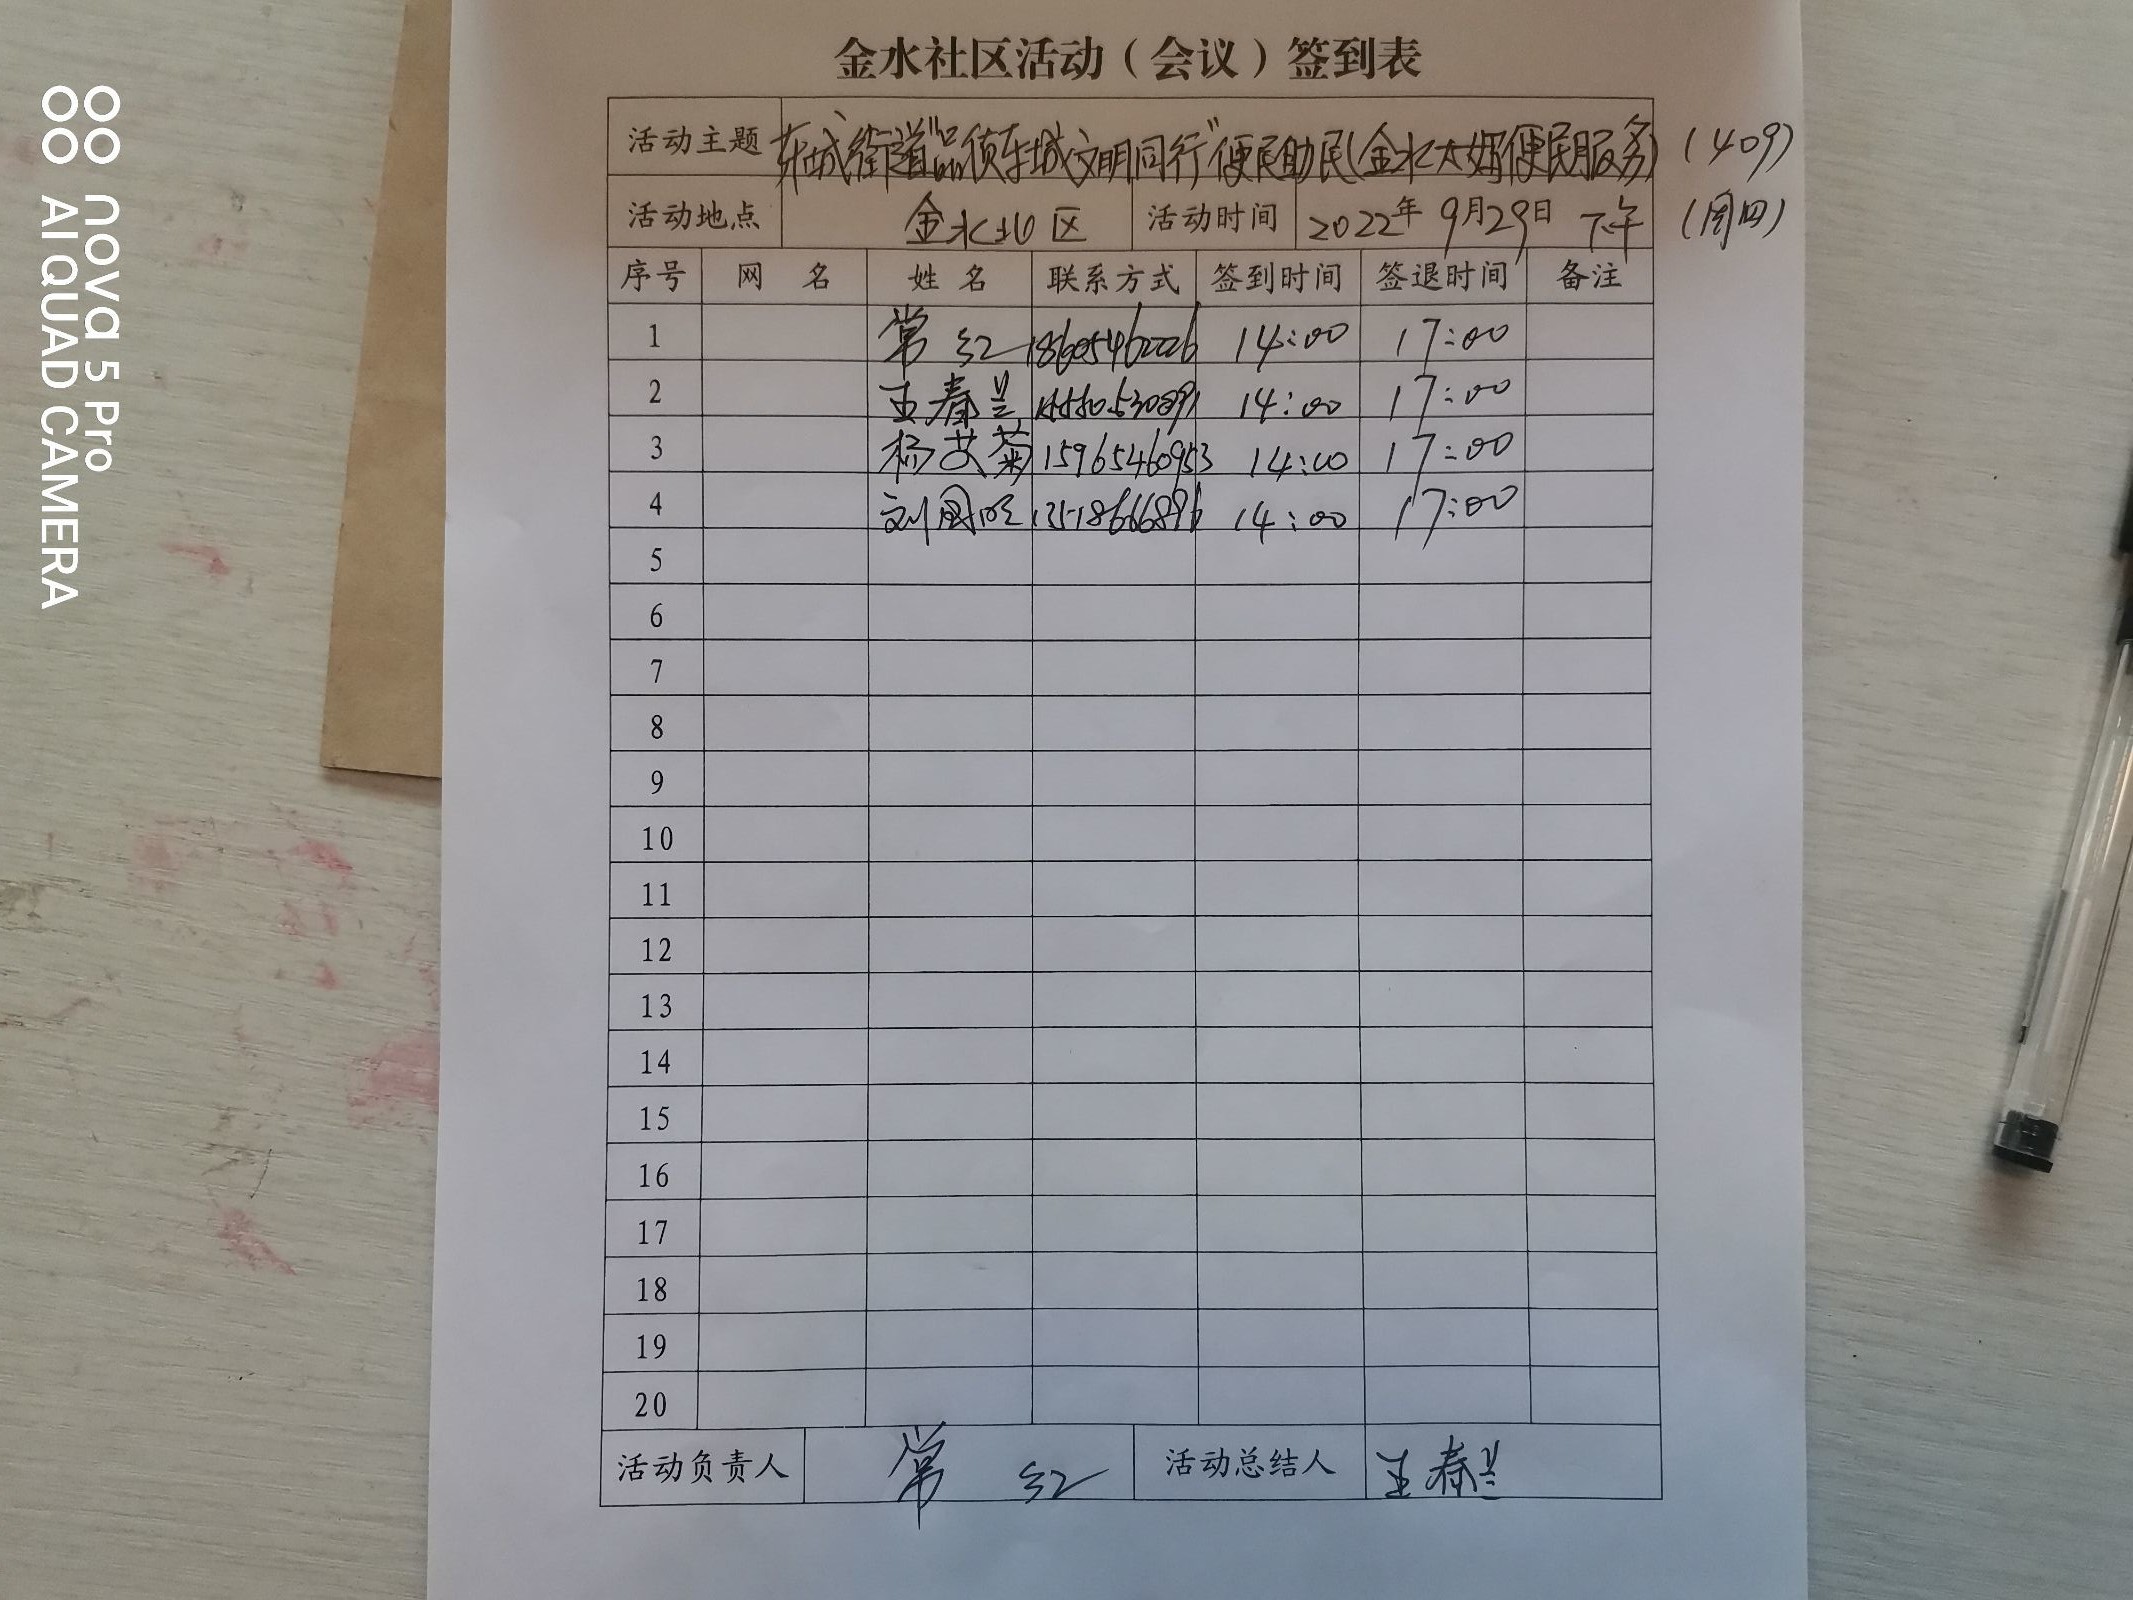 金水社区活动（会议）签到表
活动主题 东城街道"品质东城文明同行"便民助民(金水大妈便民服务) (409)
活动地点 金水北区 活动时间 2022年 9月29日 下午 (周四)
序号 网 名 姓 名 联系方式 签到时间 签退时间 备注
1 常 红 18605462226 14:00 17:00
2 王春兰 14:00 17:00
3 杨艾菊 15965460953 14:00 17:00
4 14:00 17:00
5
6
7
8
9
10
11
12
13
14
15
16
17
18
19
20
活动负责人 常 红 活动总结人 王春兰
nova 5 Pro
AI QUAD CAMERA